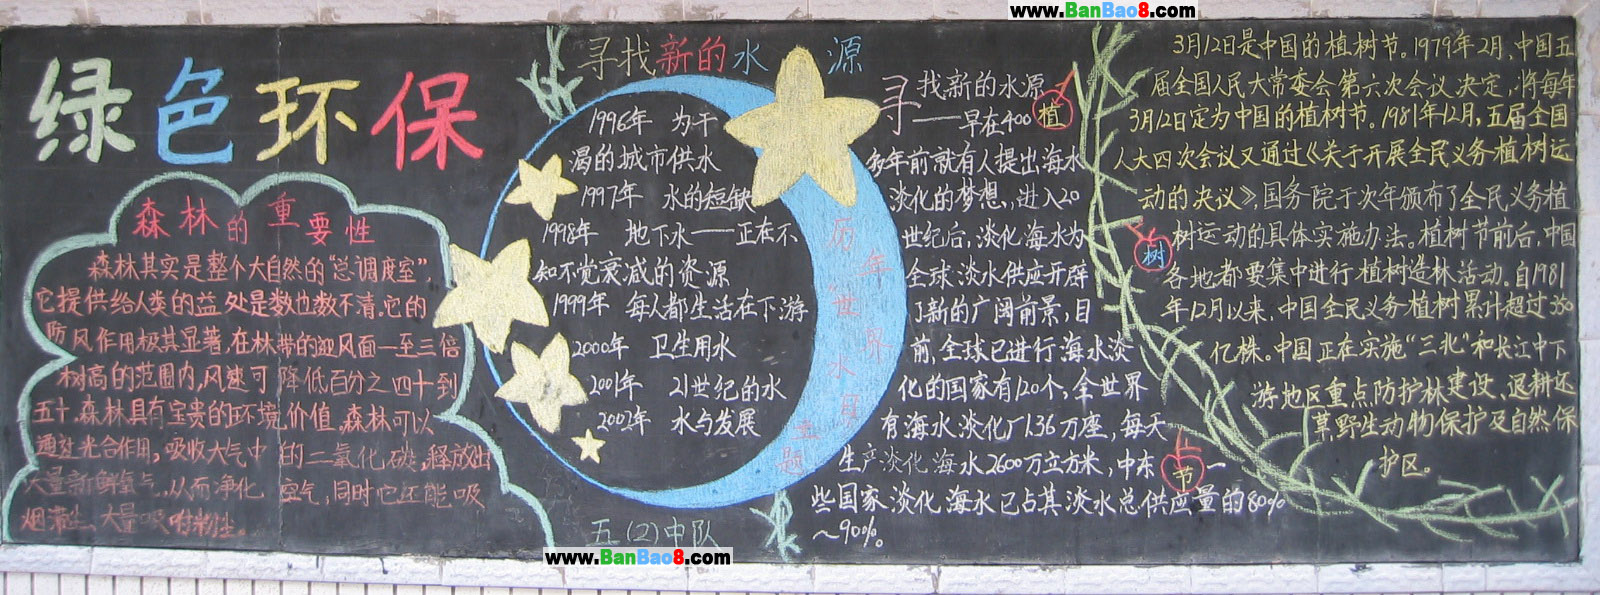 www.BanBao8.com
绿色环保
森林的重要性
森林其实是整个大自然的“总调度室”,
它提供给人类的益处是数也数不清。它的
防风作用极其显著,在林带的迎风面一至三倍
树高的范围内,风速可降低百分之四十到
五十。森林具有宝贵的环境价值。森林可以
通过光合作用,吸收大气中的二氧化碳,释放出
大量新鲜氧气,从而净化空气,同时它还能吸
烟滞尘、大量吸附
寻找新的水源
1996年 为干
渴的城市供水
1997年 水的短缺
1998年 地下水——正在不
知不觉衰减的资源
1999年 每人都生活在下游
2000年 卫生用水
2001年 21世纪的水
2002年 水与发展
历年世界水日主题
五(2)中队
寻找新的水源
——早在400
多年前就有人提出海水
淡化的梦想,进入20
世纪后,淡化海水为
全球淡水供应开辟
了新的广阔前景,目
前,全球已进行海水淡
化的国家有120个,全世界
有海水淡化厂1.36万座,每天
生产淡化海水2600万立方米,中东一
些国家淡化海水已占其淡水总供应量的80%
~90%。
植
树
节
3月12日是中国的植树节。1979年2月,中国五
届全国人民大常委会第六次会议决定,将每年
3月12日定为中国的植树节。1981年12月,五届全国
人大四次会议又通过《关于开展全民义务植树运
动的决议》,国务院于次年颁布了全民义务植
树运动的具体实施办法。植树节前后,中国
各地都要集中进行植树造林活动。自1981
年12月以来,中国全民义务植树累计超过350
亿株。中国正在实施“三北”和长江中下
游地区重点防护林建设、退耕还
草野生动物保护及自然保
护区。
www.BanBao8.com